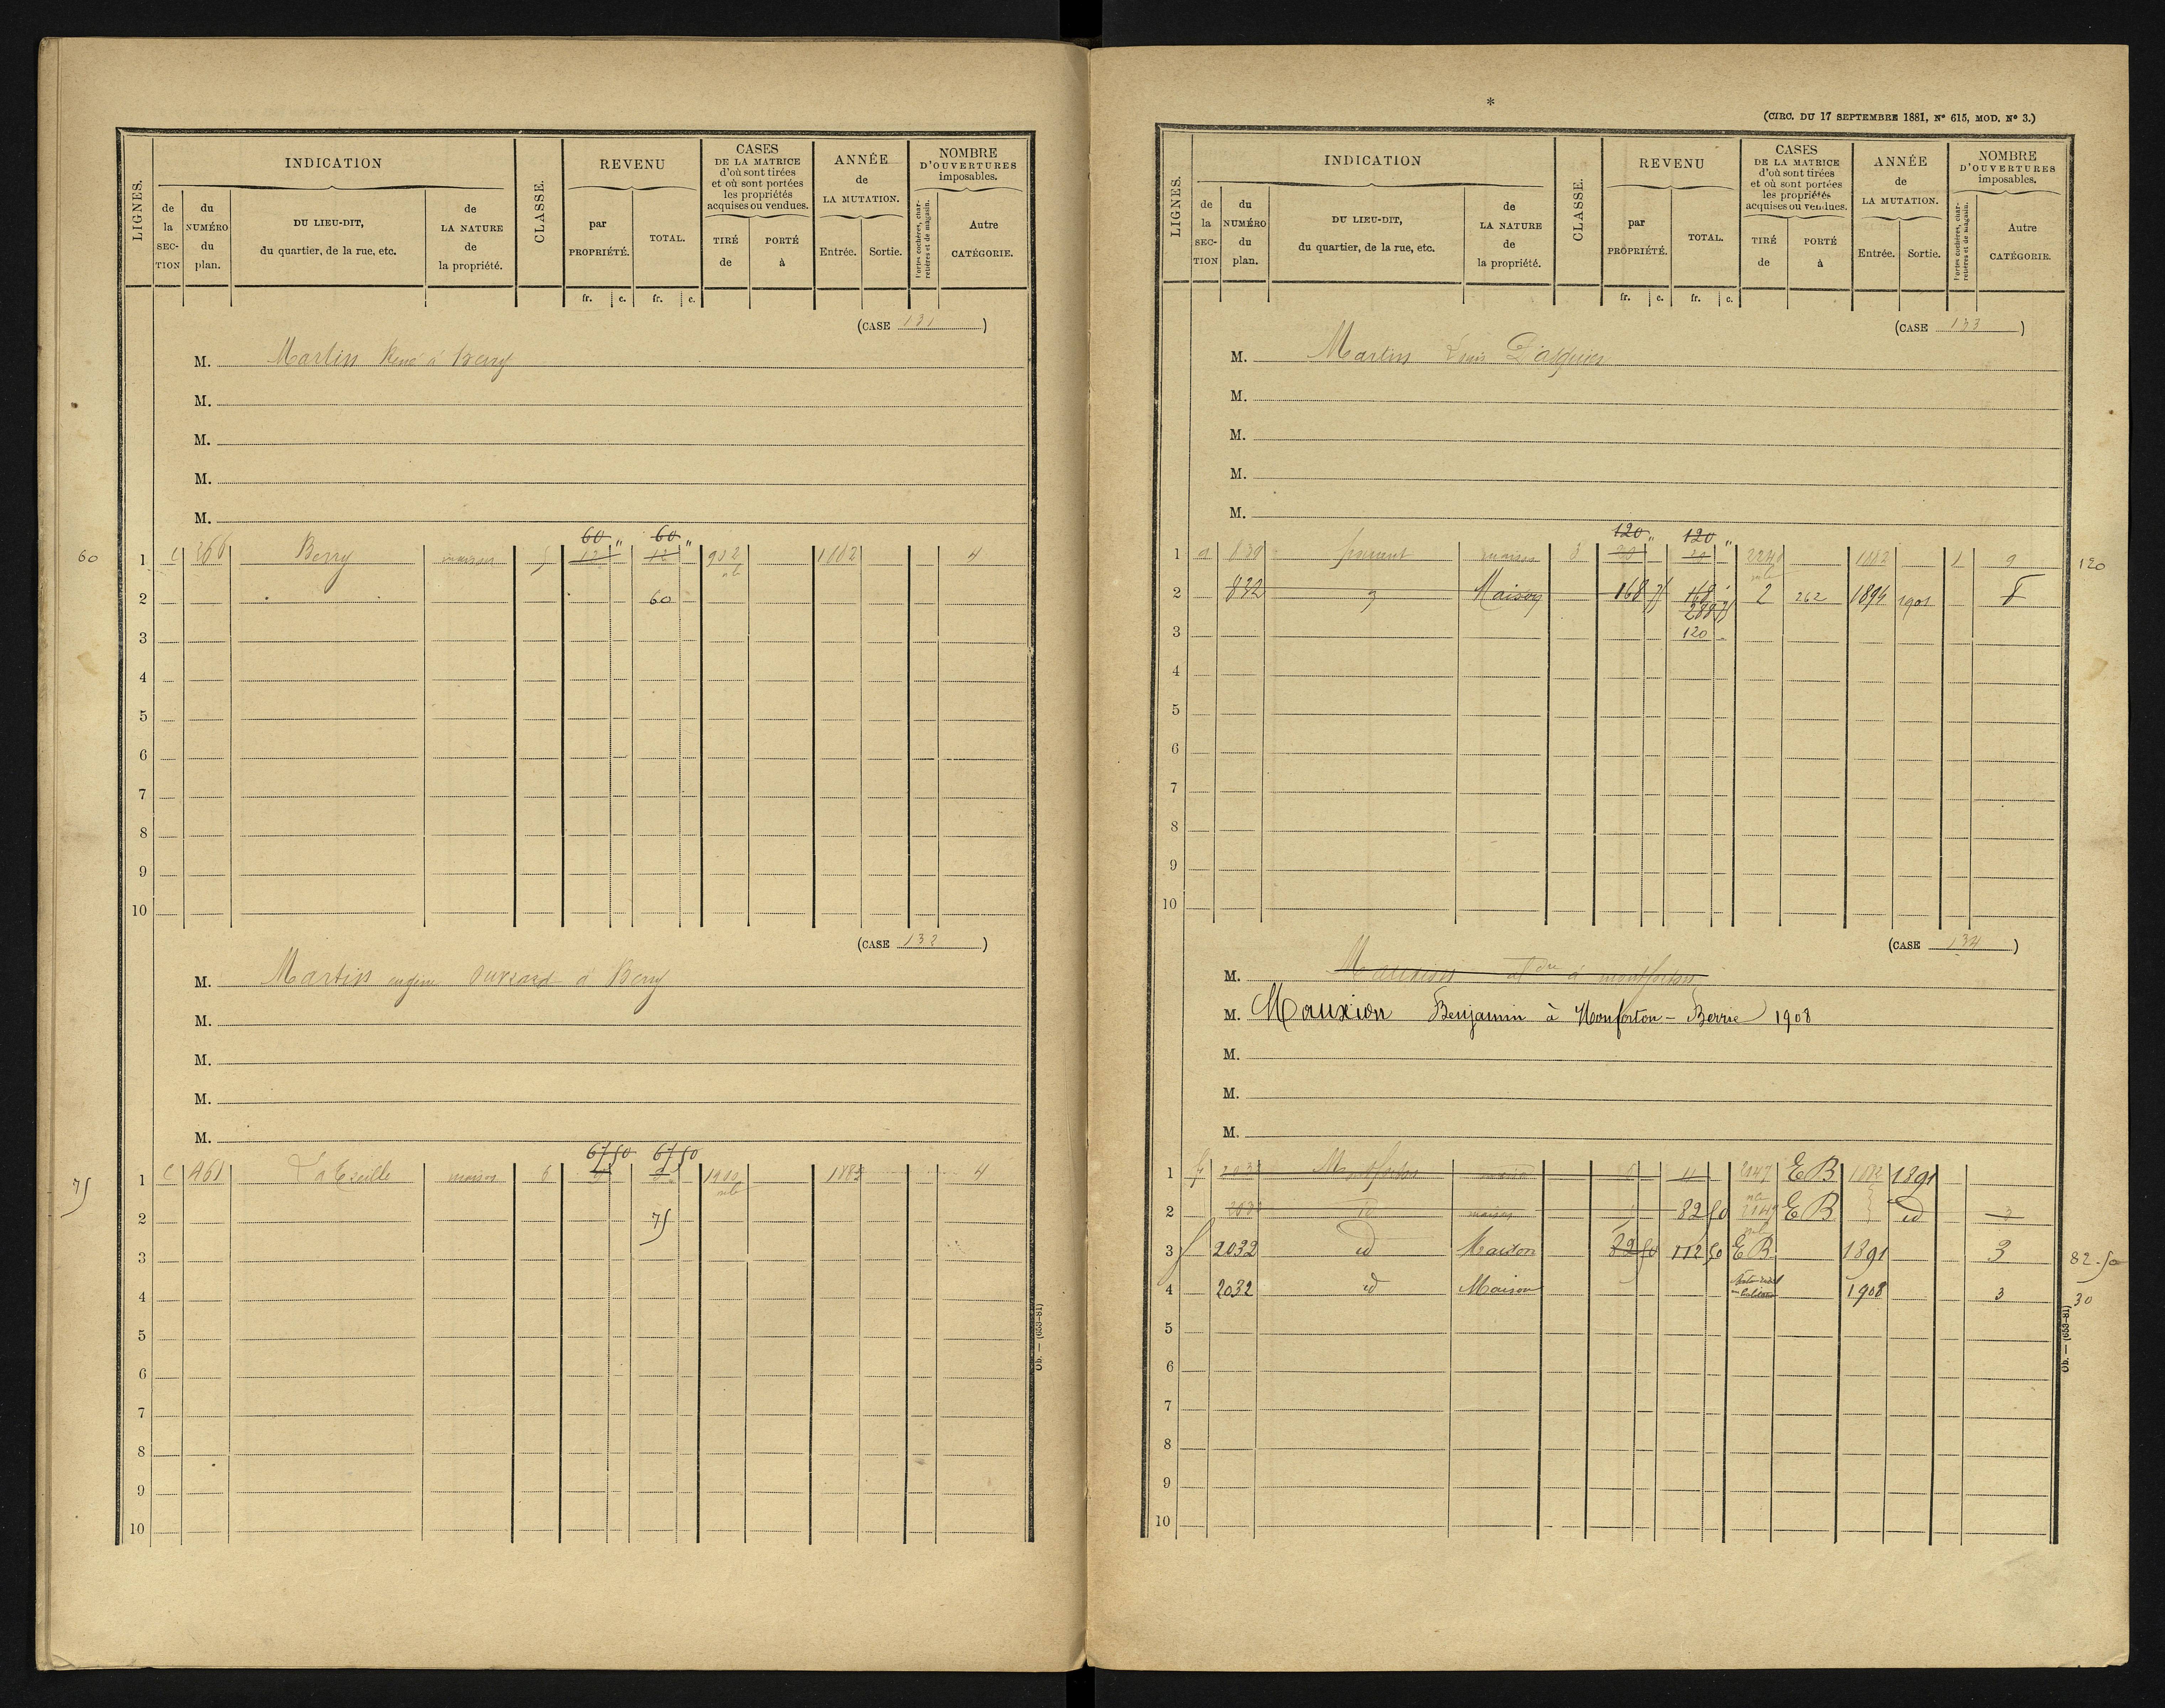 LIGNES.
INDICATION
de la SECTION
du NUMÉRO du plan.
DU LIEU-DIT, du quartier, de la rue, etc.
de LA NATURE de la propriété.
CLASSE.
REVENU
par PROPRIÉTÉ.
TOTAL.
fr. c. fr. c.
CASES DE LA MATRICE d'où sont tirées et où sont portées les propriétés acquises ou vendues.
TIRÉ de
PORTÉ à
ANNÉE de LA MUTATION.
Entrée. Sortie.
NOMBRE D'OUVERTURES imposables.
Portes cochères, charretières et de magasin.
Autre CATÉGORIE.
(CASE 131)
M. Martin René à Berry
M.
M.
M.
M.
60 „ 60 „
60 1 C 266 Berry maison 5 12 12 902 1882 4
2 60
3
4
5
6
7
8
9
10
(CASE 132)
M. Martin à Berry
M.
M.
M.
M.
67 50 67 50
75 1 C 461 maison 6 1882 4
2 75
3
4
5
6
7
8
9
10
Ob. — (653-81)
*
(CIRC. DU 17 SEPTEMBRE 1881, N° 615, MOD. N° 3.)
LIGNES.
INDICATION
de la SECTION
du NUMÉRO du plan.
DU LIEU-DIT, du quartier, de la rue, etc.
de LA NATURE de la propriété.
CLASSE.
REVENU
par PROPRIÉTÉ.
TOTAL.
fr. c. fr. c.
CASES DE LA MATRICE d'où sont tirées et où sont portées les propriétés acquises ou vendues.
TIRÉ de
PORTÉ à
ANNÉE de LA MUTATION.
Entrée. Sortie.
NOMBRE D'OUVERTURES imposables.
Portes cochères, charretières et de magasin.
Autre CATÉGORIE.
(CASE 133)
M. Martin Louis
M.
M.
M.
M.
120 „ 120 „
1 a 830 maison 8 30 30 1882 1 9 120
2 832 Maison 168 75 168 2 262 1894 1901 8
288 75
3 120
4
5
6
7
8
9
10
(CASE 134)
M. Mauxion à montforton
M. Mauxion Benjamin à Monforton – Berrie 1908
M.
M.
M.
1 Montforton maison 2147 EB 1882 1891
2 id maison 82 50 EB id 3
3 f 2032 id Maison 82 50 112 50 EB 1891 3 82.50
4 2032 id Maison 1908 3 30
5
6
7
8
9
10
Ob. — (653-81)